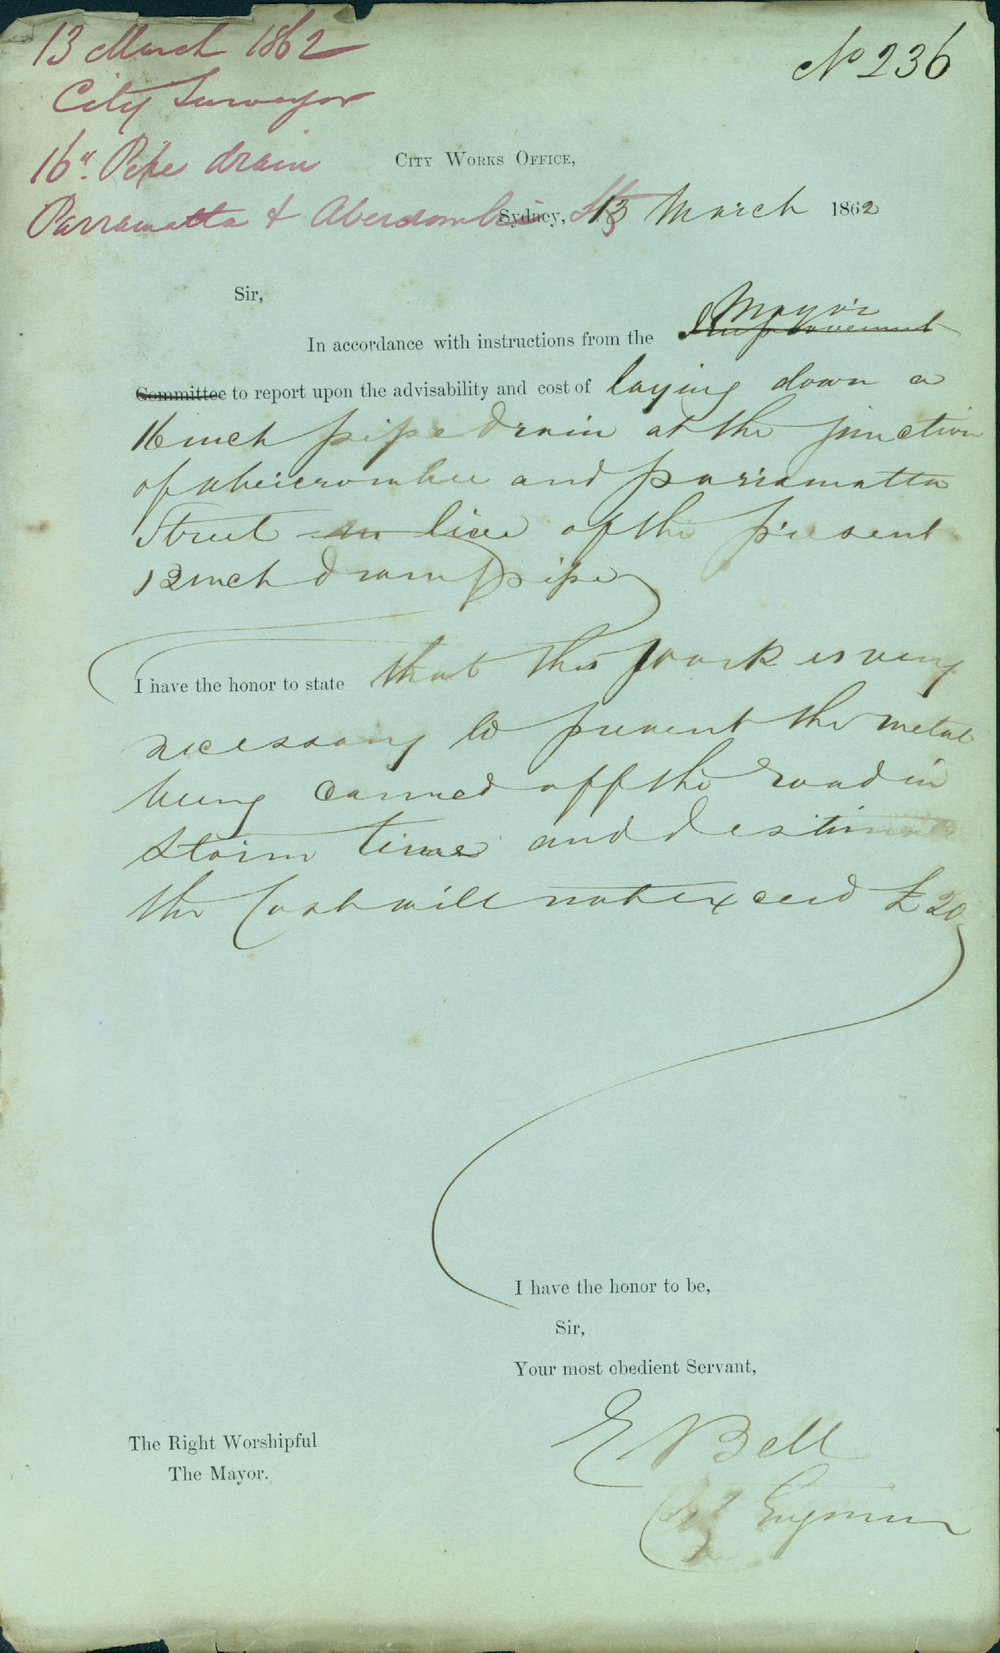 13 March 1862
City Surveyor
16" Pipe drain
Parramatta & Abercrombie Sts
No 236
City Works Office,
Sydney, 13 March 1862
Sir,
Mayor
In accordance with instructions from the Improvement
Committee to report upon the advisability and cost of laying down a
16 inch pipe drain at the junction
of Abercrombie and Parramatta
Street in lieu of the present
12 inch drain pipe
I have the honor to state that this work is very
necessary to prevent the metal
being carried off the road in
storm times and I estimate
the Cost will not exceed £20
I have the honor to be,
Sir,
Your most obedient Servant,
The Right Worshipful
The Mayor.
E Bell
City Engineer